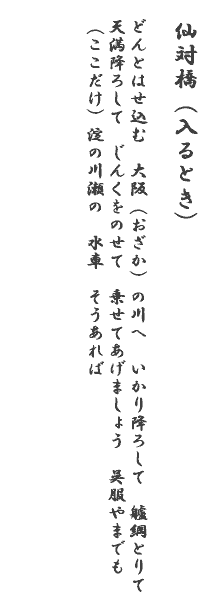 仙対橋（入るとき）
どんとはせ込む　大阪（おざか）の川へ　いかり降ろして　艫綱とりて
天満降ろして　じんくをのせて　乗せてあげましょう　呉服やまでも
（ここだけ）淀の川瀬の　水車　そうあれば